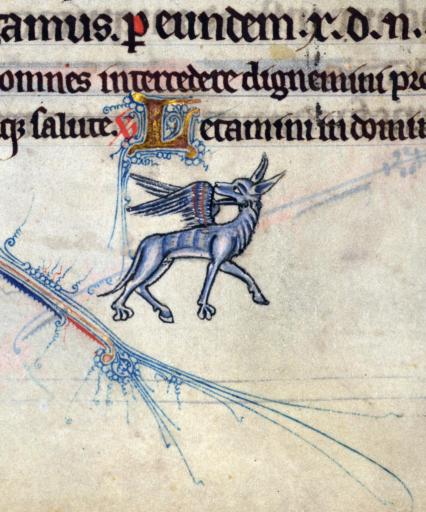 amus. ꝑ eundem. x. d. n.
omnes intercedere dignemini pro
qꝫ salute. Letamini in domin